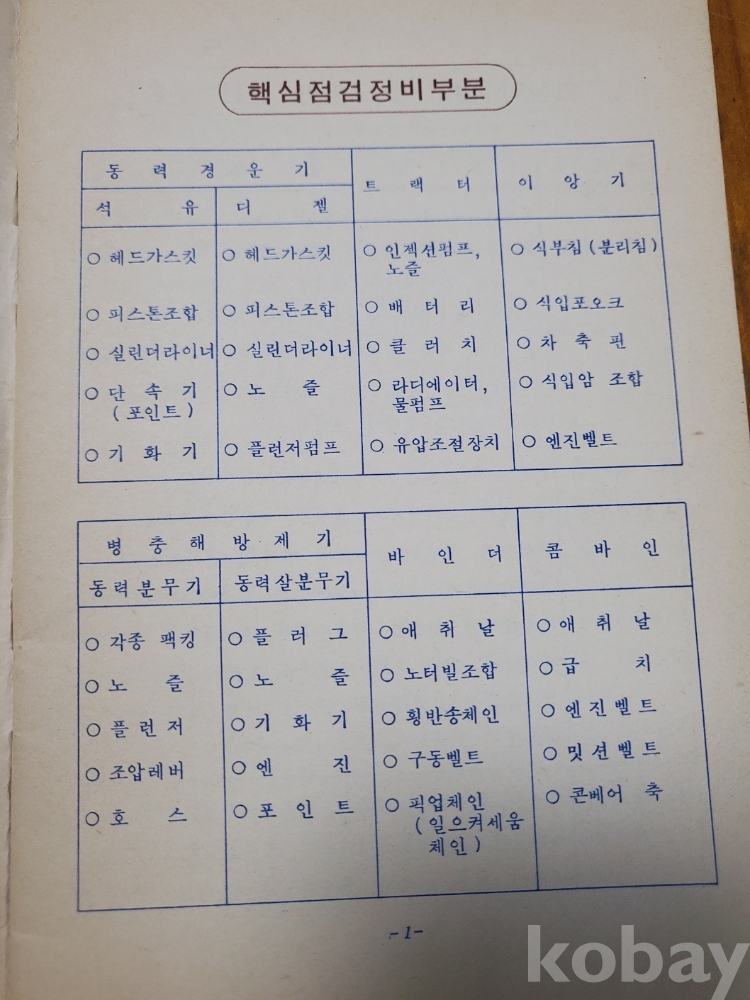 핵심점검정비부분
동력경운기 트랙터 이앙기
석유 디젤
○ 헤드가스킷 ○ 헤드가스킷 ○ 인젝션펌프, ○ 식부침(분리침)
노즐
○ 피스톤조합 ○ 피스톤조합 ○ 배터리 ○ 식입포오크
○ 실린더라이너 ○ 실린더라이너 ○ 클러치 ○ 차축핀
○ 단속기 ○ 노즐 ○ 라디에이터, ○ 식입암 조합
(포인트) 물펌프
○ 기화기 ○ 플런저펌프 ○ 유압조절장치 ○ 엔진벨트
병충해방제기 바인더 콤바인
동력분무기 동력살분무기
○ 각종 팩킹 ○ 플러그 ○ 애취날 ○ 애취날
○ 노즐 ○ 노즐 ○ 노터빌조합 ○ 급치
○ 플런저 ○ 기화기 ○ 횡반송체인 ○ 엔진벨트
○ 조압레버 ○ 엔진 ○ 구동벨트 ○ 밋션벨트
○ 호스 ○ 포인트 ○ 픽업체인 ○ 콘베어축
(일으켜세움
체인)
-1-
kobay